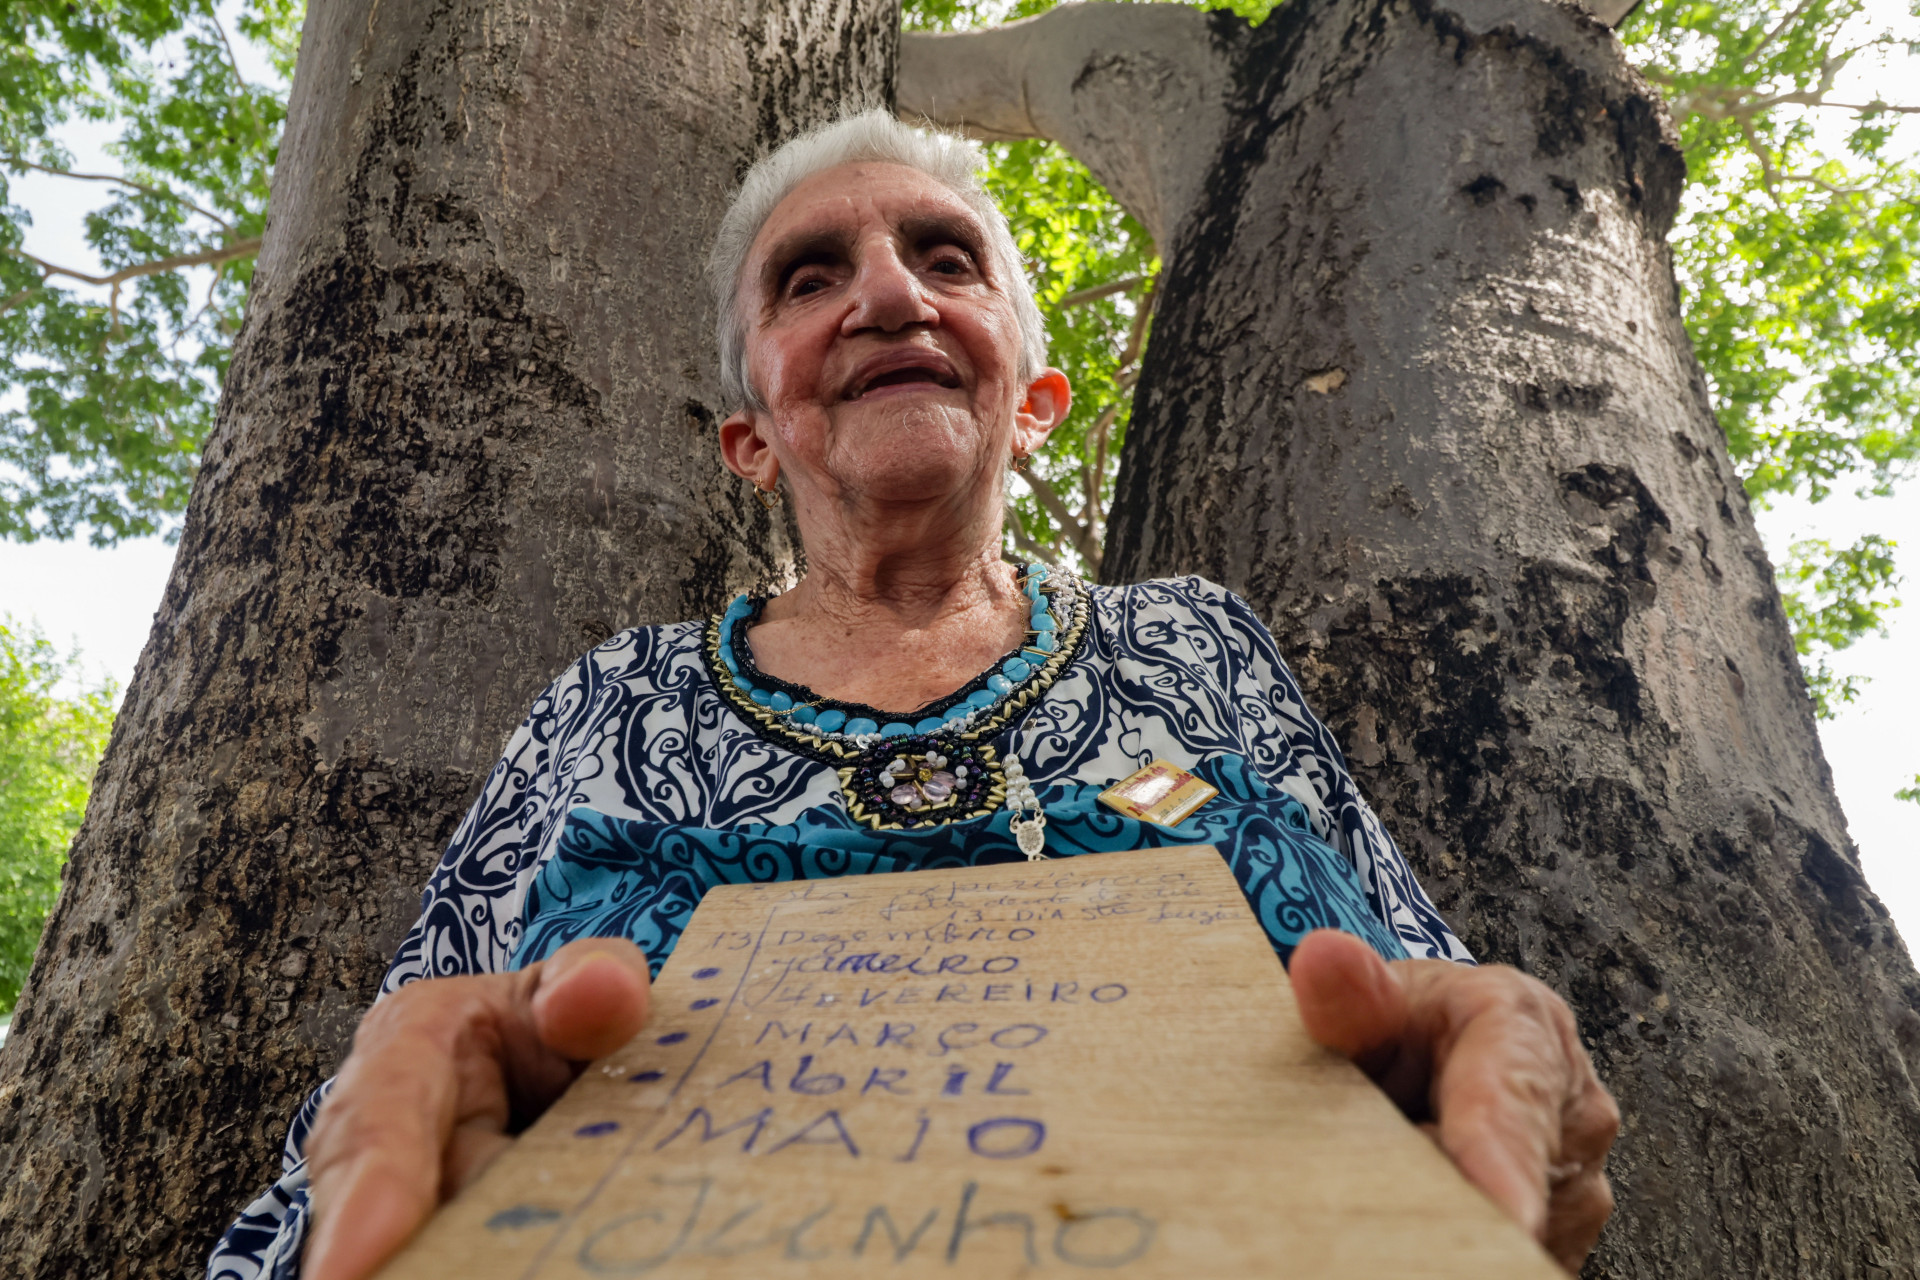 Esta experiência
é feita desde
13 DIA STª Luzia
13 Dezembro
Janeiro
FEVEREIRO
MARÇO
AbRIL
MAIO
Junho